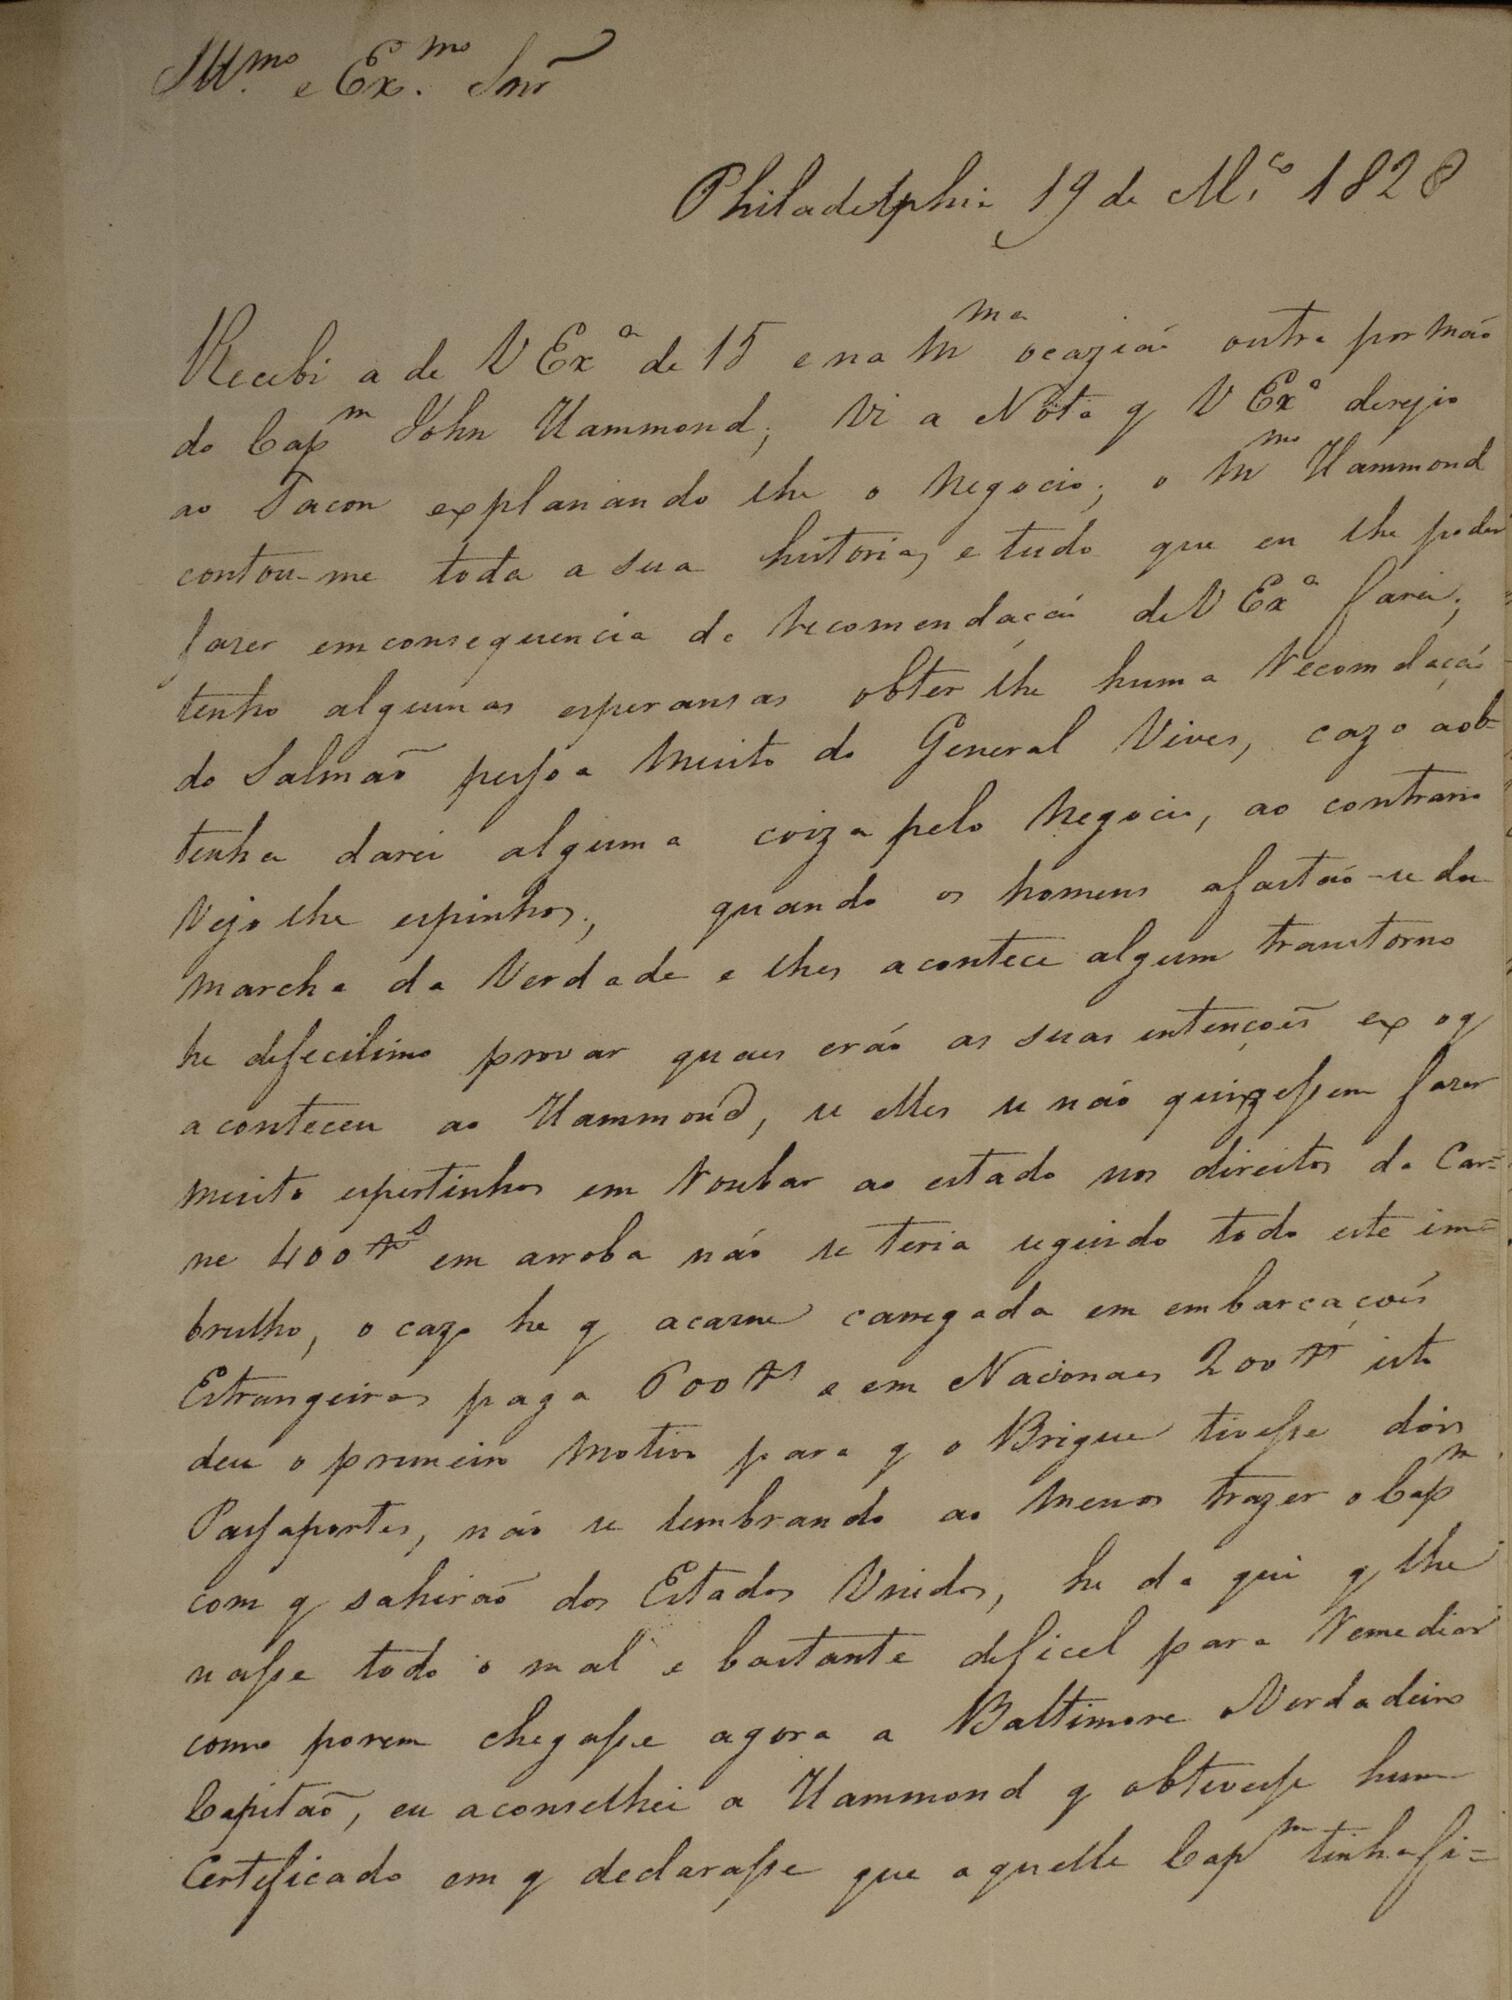 Ill.mo e Ex.mo Snr
Philadelphia 19 de M.ço 1828
Recebi a de V Exª de 15 e na mma ocazião outra por mão
do Capm John Hammond; Vi a Nota q V Exª deregio
ao Tacon explanando lhe o Negocio; o mmo Hammond
contou-me toda a sua historia, e tudo que eu lhe poder
faser em consequencia da Recomendação de V Exª farei;
tenho algumas esperansas obter lhe huma Recomdação
do Salmão pessoa muito do General Vives, cazo aob=
tenha darei alguma coiza pelo Negocio, ao contrario
Vejo lhe espinhos; quando os homens afastão-se da
marcha da Verdade e lhes acontece algum transtorno
he defecilimo provar quaes erão as suas intenções ex oq
aconteceu ao Hammond, se elles se não quizessem faser
muito espertinhos em Roubar ao estado nos direitos da Car=
ne 400 rs em arroba não se teria seguido todo este im=
brulho, o cazo he q acarne carregada em embarcações
Estrangeiras paga 600 rs e em Nacionaes 200 rs isto
deu o primeiro motivo para q o Brigue tivesse dois
Passaportes, não se lembrando ao menos trazer o Capm
com q sahirão dos Estados Unidos, he da qui q lhe
nasse todo o mal e bastante deficel para Remediar
como porem chegasse agora a Baltimore o Verdadeiro
Capitão, eu aconselhei a Hammond q obtevesse hum
Certeficado em q declarasse que aquelle Capm tinha fi=